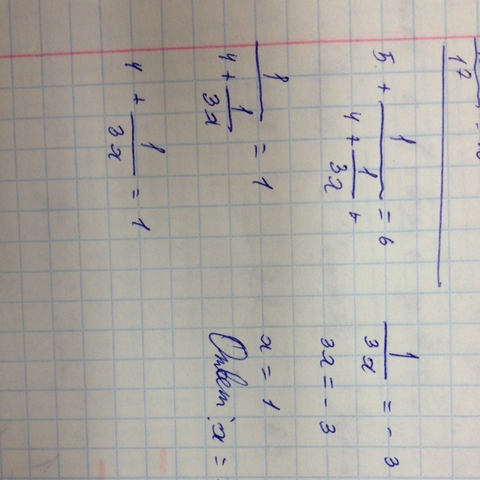 17
5 + 1/(4 + 1/(3x)) = 6
1/(4 + 1/(3x)) = 1
4 + 1/(3x) = 1
1/(3x) = - 3
3x = - 3
x = 1
Ответ: x =